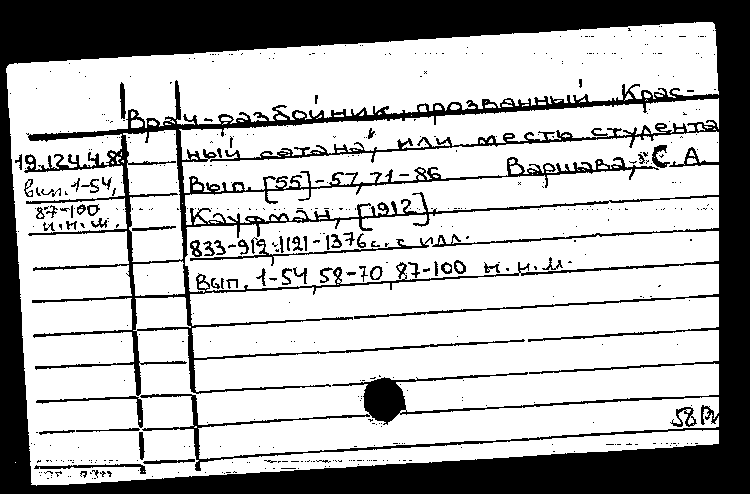 Врач-разбойник, прозванный „Крас-
ный сатана", или месть студента
19.124.4.8
Вып. [55]-57, 71-86 Варшава, С. А.
вып. 1-54,
87-100
н.н.м.
Кауфман, [1912].
833-912; 1121-1376 с. с илл.
Вып. 1-54, 58-70, 87-100 н.н.м.